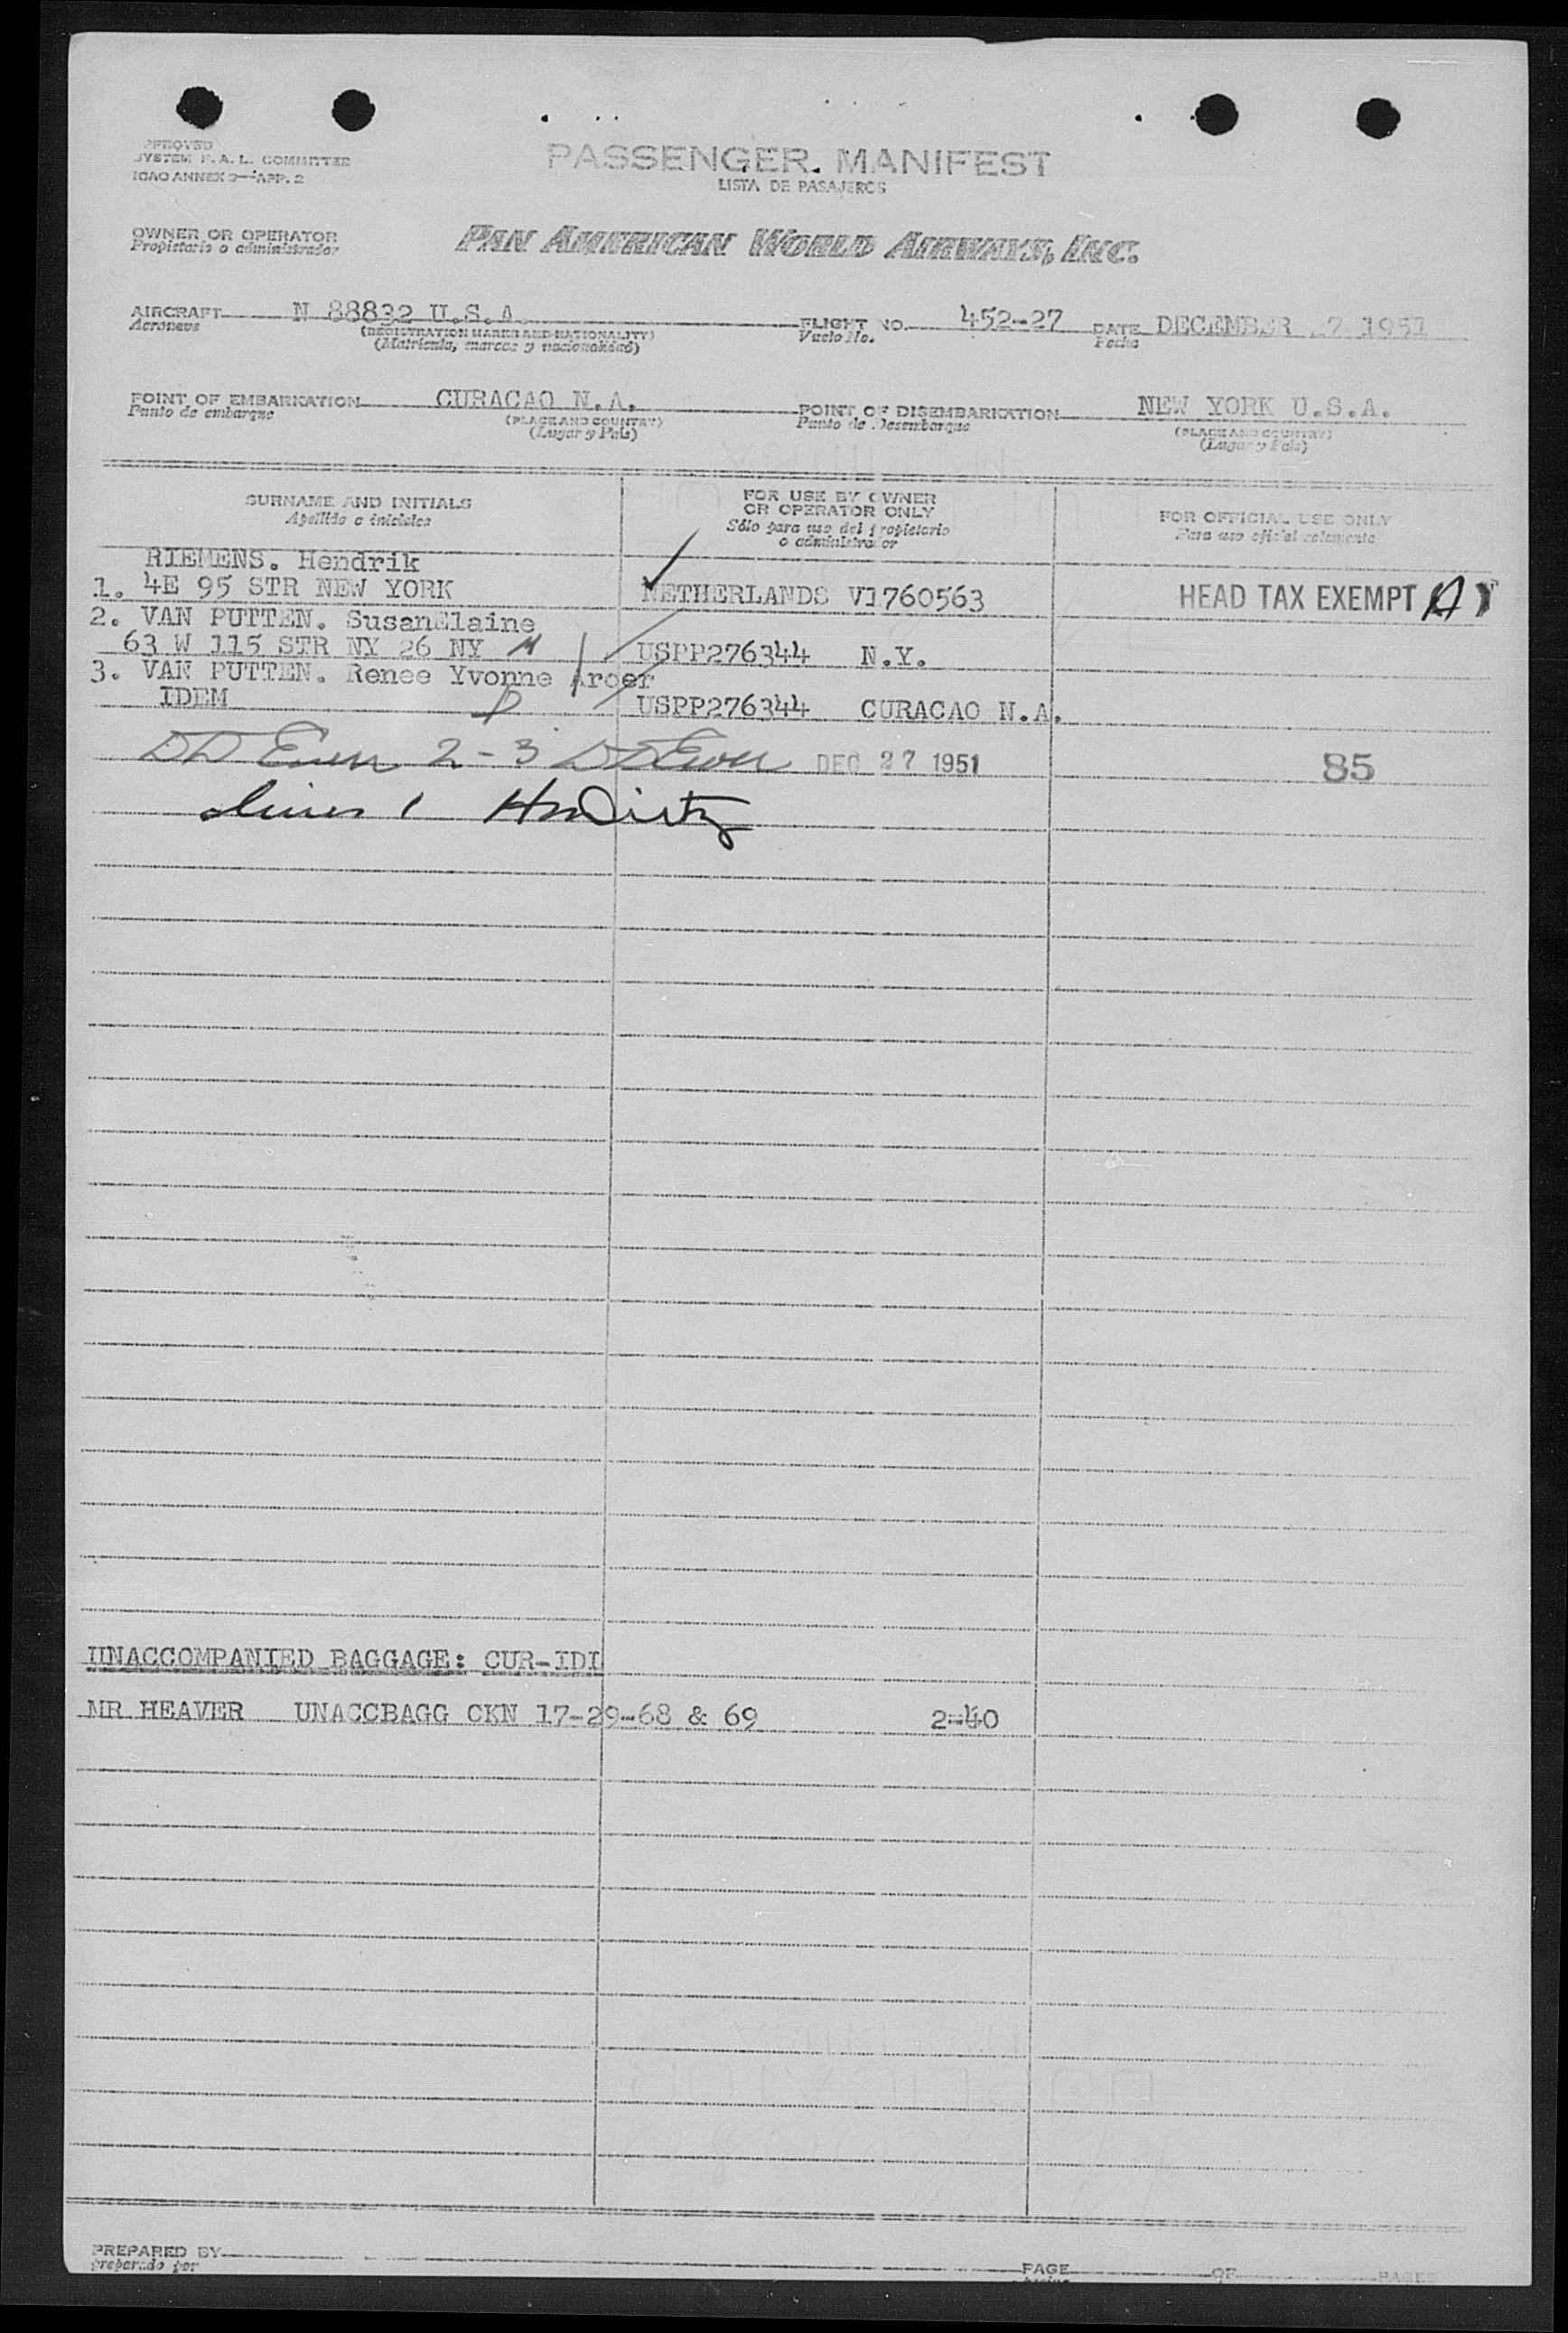 APPROVED
SYSTEM F.A.L. COMMITTEE
ICAO ANNEX 9—APP. 2
PASSENGER MANIFEST
LISTA DE PASAJEROS
OWNER OR OPERATOR
Propietario o administrador
PAN AMERICAN WORLD AIRWAYS, INC.
AIRCRAFT N 88832 U.S.A. FLIGHT NO. 452-27 DATE DECEMBER 27 1951
Aeronave (REGISTRATION MARKS AND NATIONALITY) Vuelo No. Fecha
(Matrícula, marcas y nacionalidad)
POINT OF EMBARKATION CURACAO N.A. POINT OF DISEMBARKATION NEW YORK U.S.A.
Punto de embarque (PLACE AND COUNTRY) Punto de Desembarque (PLACE AND COUNTRY)
(Lugar y País) (Lugar y País)
SURNAME AND INITIALS FOR USE BY OWNER OR OPERATOR ONLY FOR OFFICIAL USE ONLY
Apellido e iniciales Sólo para uso del propietario o administrador Para uso oficial solamente
RIEMENS. Hendrik
1. 4E 95 STR NEW YORK NETHERLANDS V1760563 HEAD TAX EXEMPT
2. VAN PUTTEN. SusanElaine
63 W 115 STR NY 26 NY USPP276344 N.Y.
3. VAN PUTTEN. Renee Yvonne Arcer
IDEM USPP276344 CURACAO N.A.
2-3 DEC 27 1951 85
UNACCOMPANIED BAGGAGE: CUR-IDL
MR HEAVER UNACCBAGG CKN 17-29-68 & 69 2-40
PREPARED BY PAGE OF PAGES
preparado por